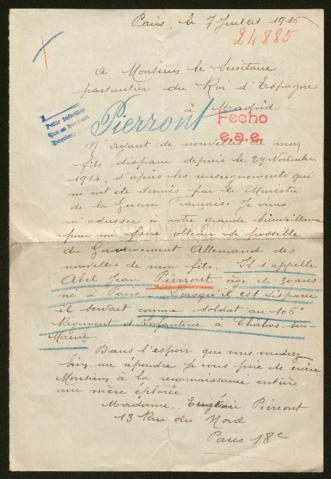 Paris, le 7 Juillet 1916
24885
A Monsieur le Secrétaire
particulier du Roi d'Espagne
à Madrid
Pierront
Fecho
e.a.e.
N'ayant de nouvelles de mon
fils disparu depuis le 29 Novembre
1914, d'après les renseignements qui
m'ont été donnés par le Ministère
de la Guerre Français. Je viens
m'adresser à votre grande bienveillance
pour me faire obtenir si possible
du Gouvernement Allemand des
nouvelles de mon fils. Il s'appelle
Abel Jean Pierront âgé de 30 ans
né à Paris. Lorsqu'il est disparu
il servait comme soldat au 106e
Regiment d'Infanterie à Chalons-sur-
Marne
Dans l'espoir que vous voudrez
bien me répondre je vous prie de croire
Monsieur à la reconnaissance entière
une mère éplorée
Madame Eugénie Pierront
13 Rue du Nord
Paris 18e